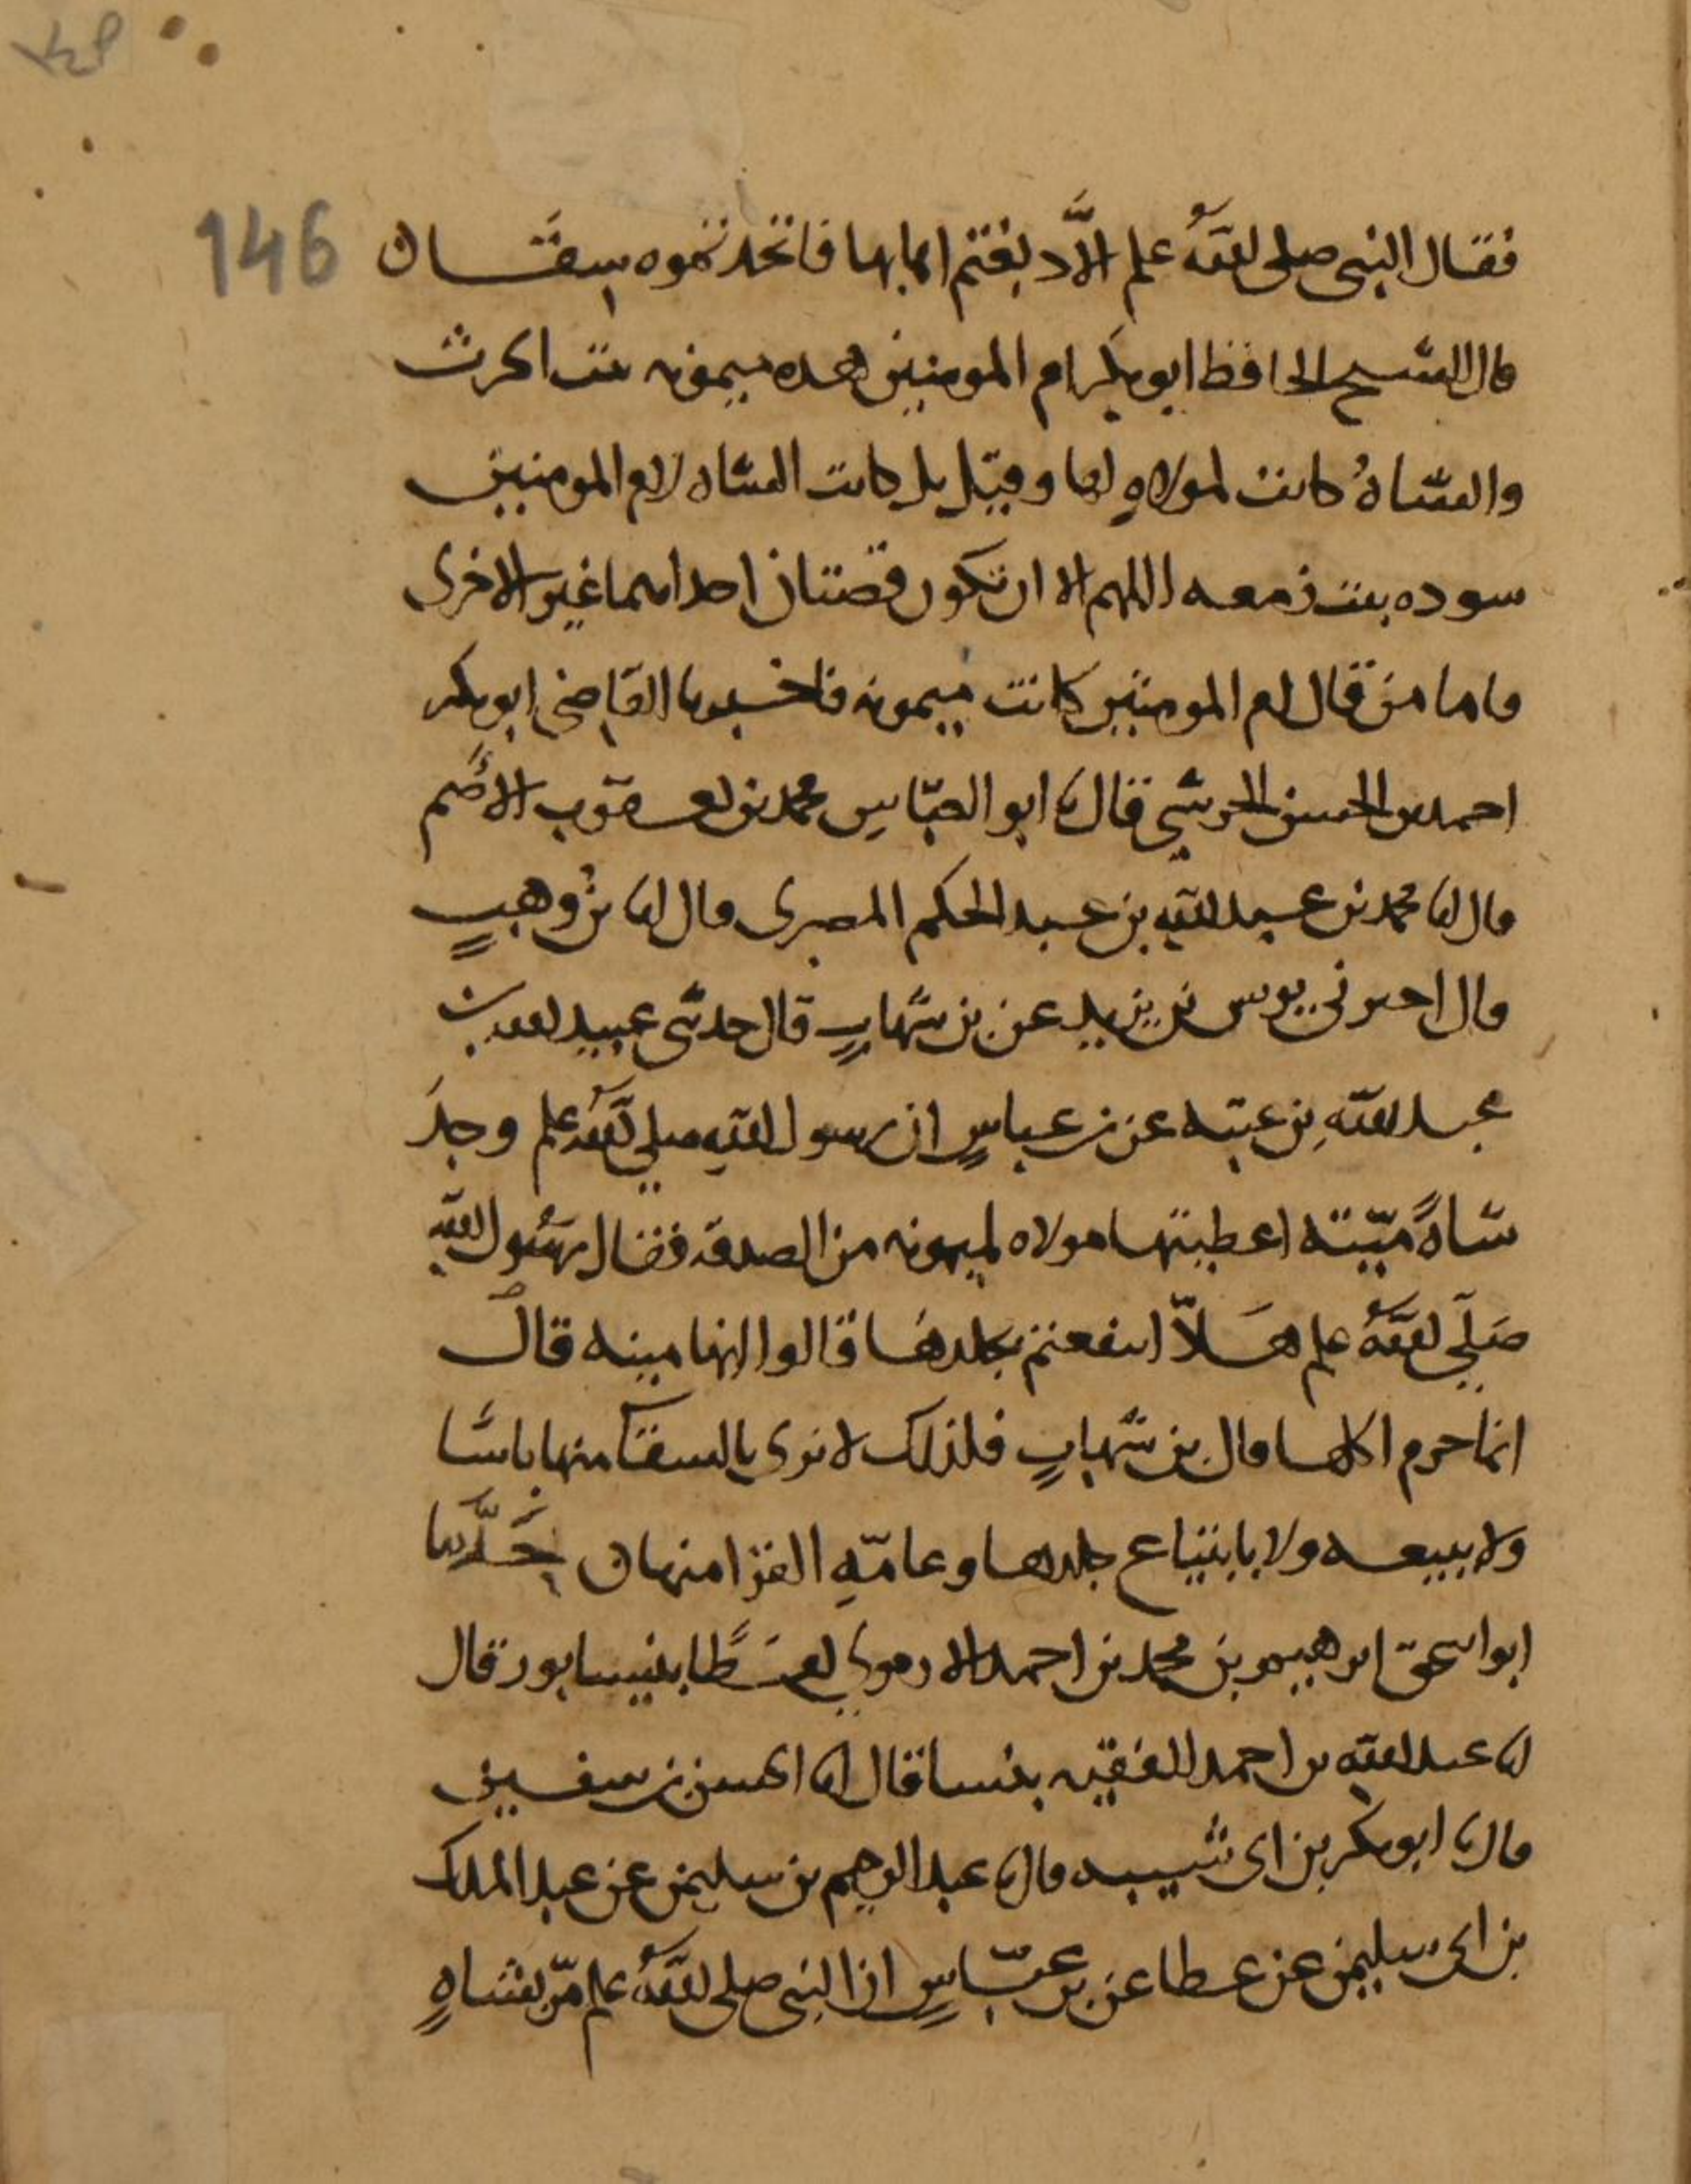 146
فقال النبي صلى الله علم ألا دبغتم اهابها فاتخذتموه سقا ن
قال الشيخ الحافظ ابو بكر ام المومنين هده ميمونه بنت الحرث
والشاةُ كانت لمولاهٍ لها وقيل بل كانت الشاه لام المومنين
سوده بنت زمعه اللهم الا ان تكون قصتان احداهما غير الاخرى
فاما من قال ام المومنين كانت ميمونه فاخبرنا القاضي ابو بكر
احمد بن الحسن الحرشي قال نا ابو العبّاس محمد بن يعقوب الأصم
قال انا محمد بن عبد الله بن عبد الحكم المصرى قال انا بن وهبٍ
قال اخبرني يونس بن يزيد عن بن شهابٍ قال حدثني عبيد الله بن
عبد اللهِ بن عتبه عن بن عباسٍ ان رسول الله صلي الله علم وجدَ
شاةً ميّته اعطيتها مولاه لميمونه من الصدقه فقال رسُول الله
صَلّي اللهُ علم هَلاّ انتفعتم بجلدها قالوا انها ميته قال
انما حرم اكلها قال بن شهابٍ فلذلك لا نرى بالسقا منها باسًا
ولا ببيعه ولا بابتياع جلدها وعامّهِ الفرا منها ن حَدَّثنا
ابو اسحق ابرهيم بن محمد بن احمد الارموي لفظًا بنيسابور قال
انا عبد الله بن احمد الفقيه بنسا قال انا الحسن بن سفين
قال نا ابو بكر بن ابى شيبه قال نا عبد الرحيم بن سليمن عن عبد الملك
بن ابى سليمن عن عطا عن بن عبّاسٍ ان النبي صلى اللهُ علم مرّ بشاهٍ